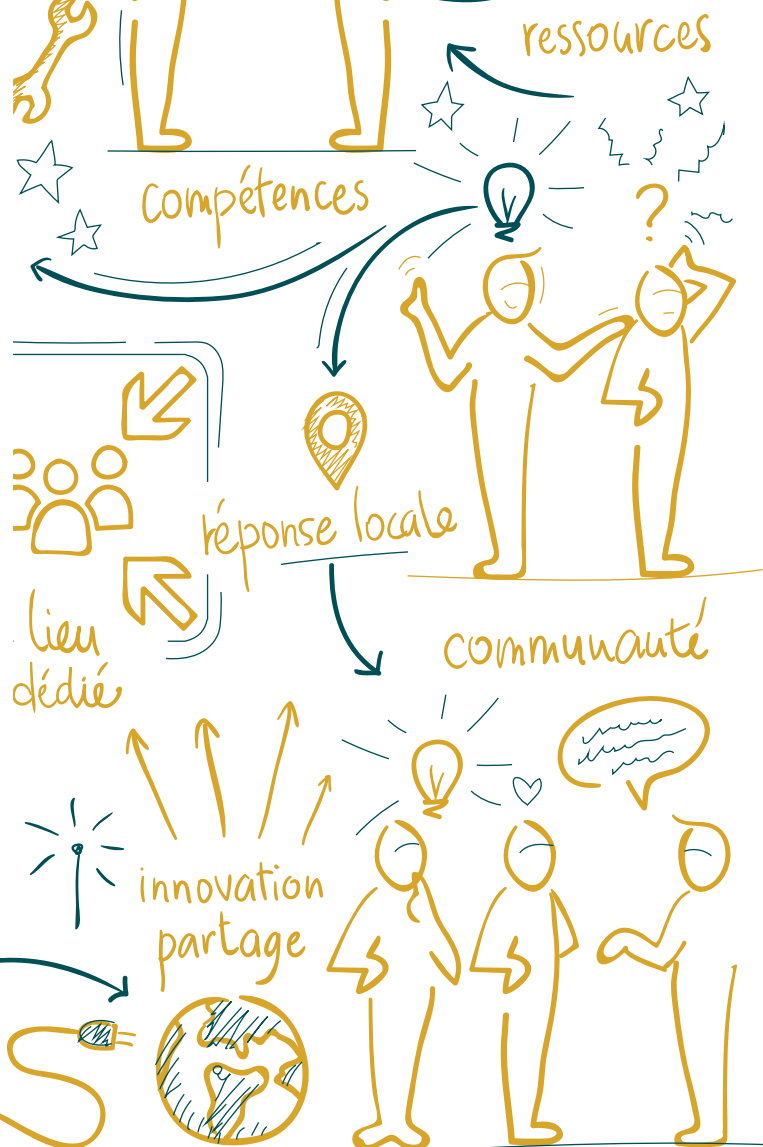 ressources
compétences
?
réponse locale
lieu
dédié
communauté
innovation
partage